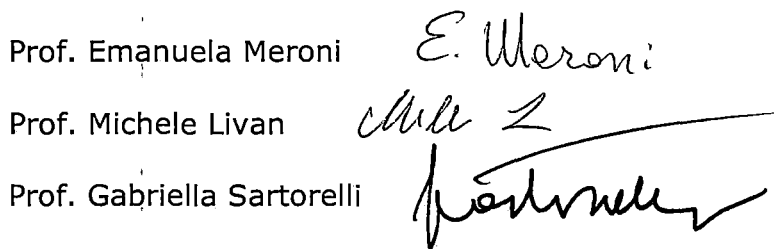 Prof. Emanuela Meroni E. Meroni
Prof. Michele Livan
Prof. Gabriella Sartorelli